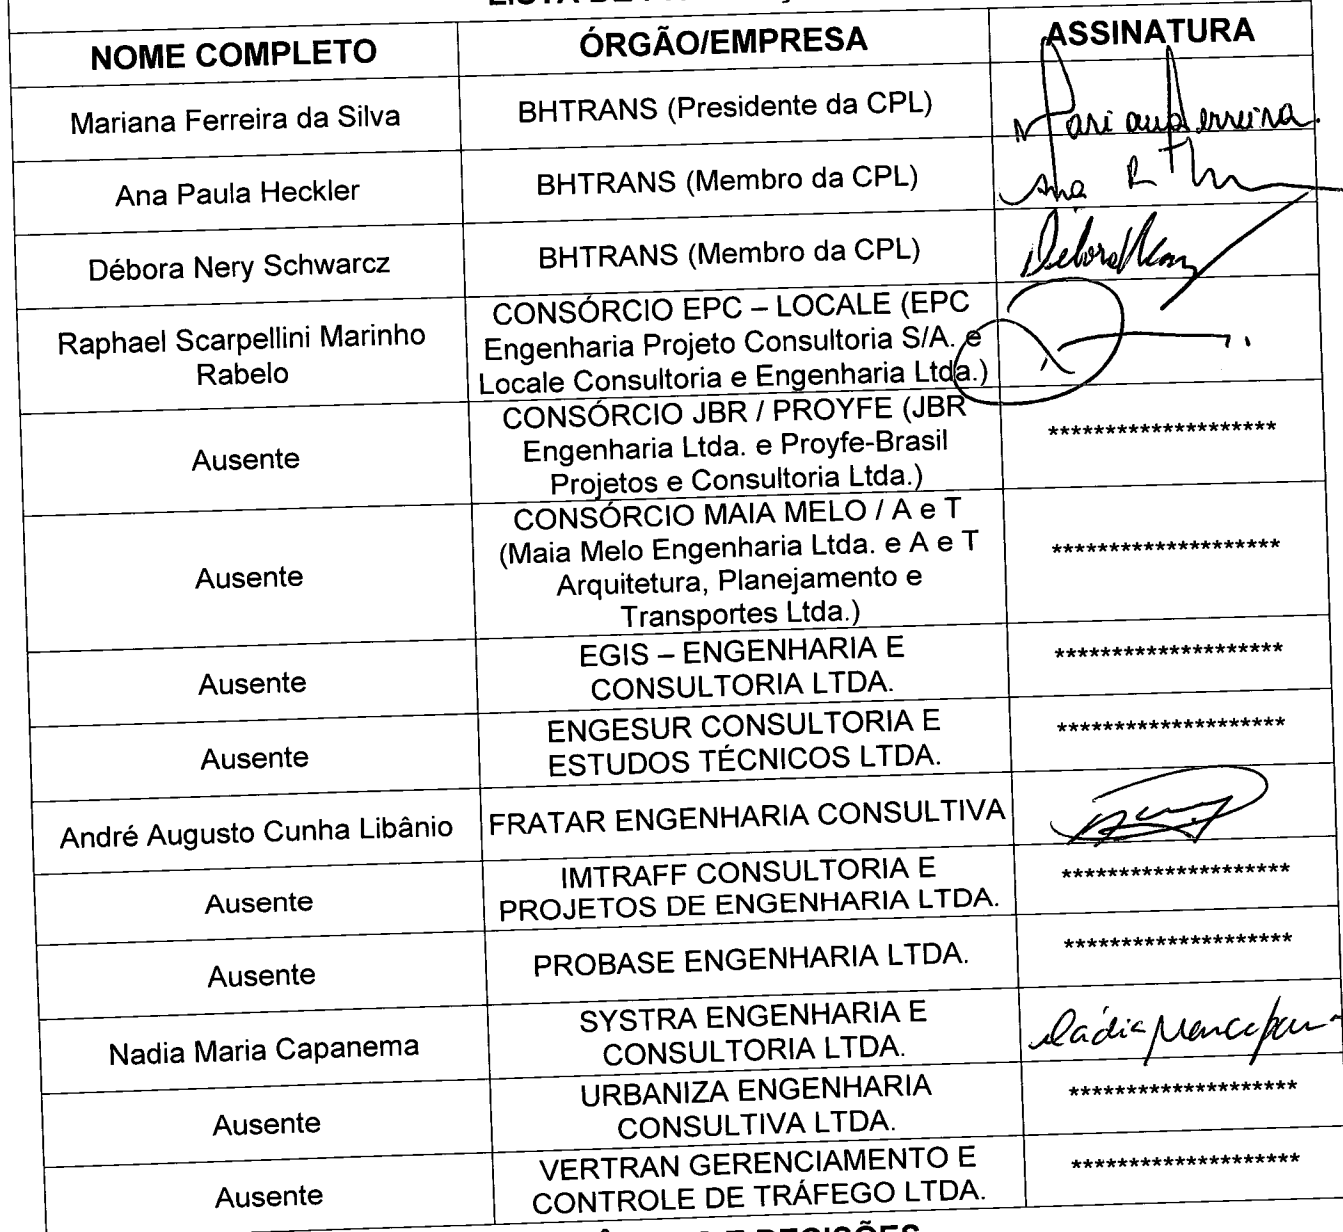 NOME COMPLETO
ÓRGÃO/EMPRESA
ASSINATURA
Mariana Ferreira da Silva
BHTRANS (Presidente da CPL)
Mariana Ferreira
Ana Paula Heckler
BHTRANS (Membro da CPL)
Ana
Débora Nery Schwarcz
BHTRANS (Membro da CPL)
Raphael Scarpellini Marinho
Rabelo
CONSÓRCIO EPC – LOCALE (EPC
Engenharia Projeto Consultoria S/A. e
Locale Consultoria e Engenharia Ltda.)
Ausente
CONSÓRCIO JBR / PROYFE (JBR
Engenharia Ltda. e Proyfe-Brasil
Projetos e Consultoria Ltda.)
********************
Ausente
CONSÓRCIO MAIA MELO / A e T
(Maia Melo Engenharia Ltda. e A e T
Arquitetura, Planejamento e
Transportes Ltda.)
********************
Ausente
EGIS – ENGENHARIA E
CONSULTORIA LTDA.
********************
Ausente
ENGESUR CONSULTORIA E
ESTUDOS TÉCNICOS LTDA.
********************
André Augusto Cunha Libânio
FRATAR ENGENHARIA CONSULTIVA
Ausente
IMTRAFF CONSULTORIA E
PROJETOS DE ENGENHARIA LTDA.
********************
Ausente
PROBASE ENGENHARIA LTDA.
********************
Nadia Maria Capanema
SYSTRA ENGENHARIA E
CONSULTORIA LTDA.
Ausente
URBANIZA ENGENHARIA
CONSULTIVA LTDA.
********************
Ausente
VERTRAN GERENCIAMENTO E
CONTROLE DE TRÁFEGO LTDA.
********************